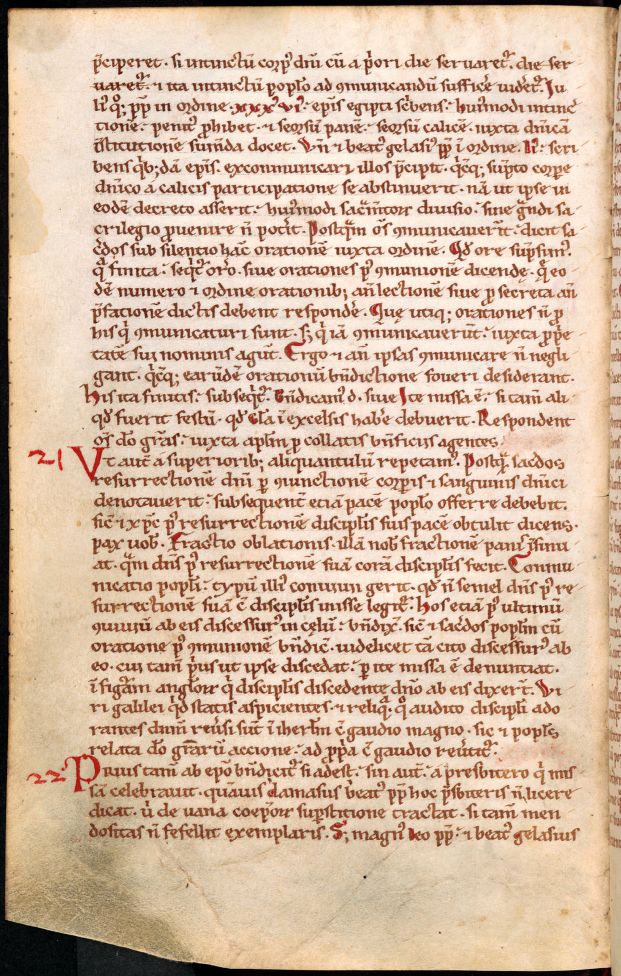 p̄ciperet. si intinctū corp' dn̄i cū a p̄ori die seruaret᷑. die ser
uaret᷑. ⁊ ita intinctū pop̄lo ad ꝯmunicandū suffic̄e uidet᷑. Iu
li' q̄; pp̄ in ordine .xxxvi'. ep̄is egipti sc̄bens. hui'modi intinc
tionē. penit' ꝓhibet. ⁊ seorsū panē. seorsū calicē. iuxta dn̄icā
īstitutionē sum̄da docet. Vn̄ ⁊ beat' gelasi' pp̄ ī ordine .li'. scri
bens q̄b;dā ep̄is. excommunicari illos p̄cipit. q̄cq; sūpto corpe
dn̄ico a calicis participatione se abstinuerit. nā ut ipse in
eodē decreto asserit. hui'modi sac̄mtoꝝ diuisio. sine g̃ndi sa
crilegio ꝓuenire n̄ potit. Postq̄m om̄s ꝯmunicauerint. dicit sa
c̄dos sub silentio hāc orationē iuxta ordinē. Qd̄ ore sūpsim'.
q̄ finita. seq̄t᷑ or̄o. siue orationes p' ꝯmunionē dicende. q̄ eo
dē numero ⁊ ordine orationib; an̄ lectionē siue ꝓ secreta an̄
p̄fationē dictis debent respondē. Que utiq; orationes n̄ ꝓ
his q̄ ꝯmunicaturi sunt. s; q̄ iā ꝯmunicauerunt. iuxta ꝓp̄e
tatē sui nominis agunt. Ergo ⁊ an̄ ipsas ꝯmunicare n̄ negli
gant. q̄cq; earūdē orationū bn̄dictione foueri desiderant.
His ita finitis. subseq̄t᷑. Bn̄dicam' d. siue Ite missa ē. si tam̄ ali
qd̄ fuerit festū. qd̄ Gl̄a ī excelsis hab̄e debuerit. Respondent
om̄s do gr̄as. iuxta apl̄m ꝓ collatis bn̄ficiis agentes.
21 Vt aut̄ a superiorib; aliquantulū repetam'. Postq̄ sac̄dos
resurrectionē dn̄i p̱ iunctionē corp̱is ⁊ sanguinis dn̄ici
denotauerit. subsequent̄ etiā pacē pop̄lo offerre debebit.
sic̄ ⁊ xp̄c p' resurrectionē disciplis suis pacē obtulit dicens.
pax uob̄. Fractio oblationis. illā nob̄ fractionē panis īsinu
at. q̄m dn̄s p' resurrectionē suā corā discipl̄is fecit. Commu
nicatio pop̄li. typū illi' conuiuii gerit. qd̄ n̄ semel dn̄s p' re
surrectionē suā c̄ discipl̄is inisse legit᷑. hos etiā p' ultimū
ꝯuiuiū ab eis discessur' in cęlū. bn̄dix̄. sic̄ ⁊ sac̄dos pop̄lm cū
oratione p' ꝯmunionē bn̄dic̄. uidelicet tā cito discessur' ab
eo. cui tam̄ p̄us ut ipse discedat. ꝑ ite missa ē denunciat.
ī figurā angl̄oꝝ q̄ discipl̄is discedente dn̄o ab eis dixer̄t. Vi
ri galilei q̄d statis aspicientes. ⁊ reliq̄. q̄ audito discipl̄i ado
rantes dn̄m reūsi sūt ī ihrlm̄ c̄ gaudio magno. sic ⁊ pop̄ls
relata do gr̄arū accione. ad ꝓp̄a c̄ gaudio reūtit᷑.
22 Prius tam̄ ab ep̄o bn̄dicit᷑ si adest. sin aut̄. a presbitero q̄ mis
sā celebrauit. quāuis damasus beat' pp̄ hoc p̄sbiteris n̄ licere
dicat. u̇ de uana coep̄oꝝ sup̱stitione tractat. si tam̄ men
dositas n̄ fefellit exemplaris. S; magn' leo pp̄. ⁊ beat' gelasius